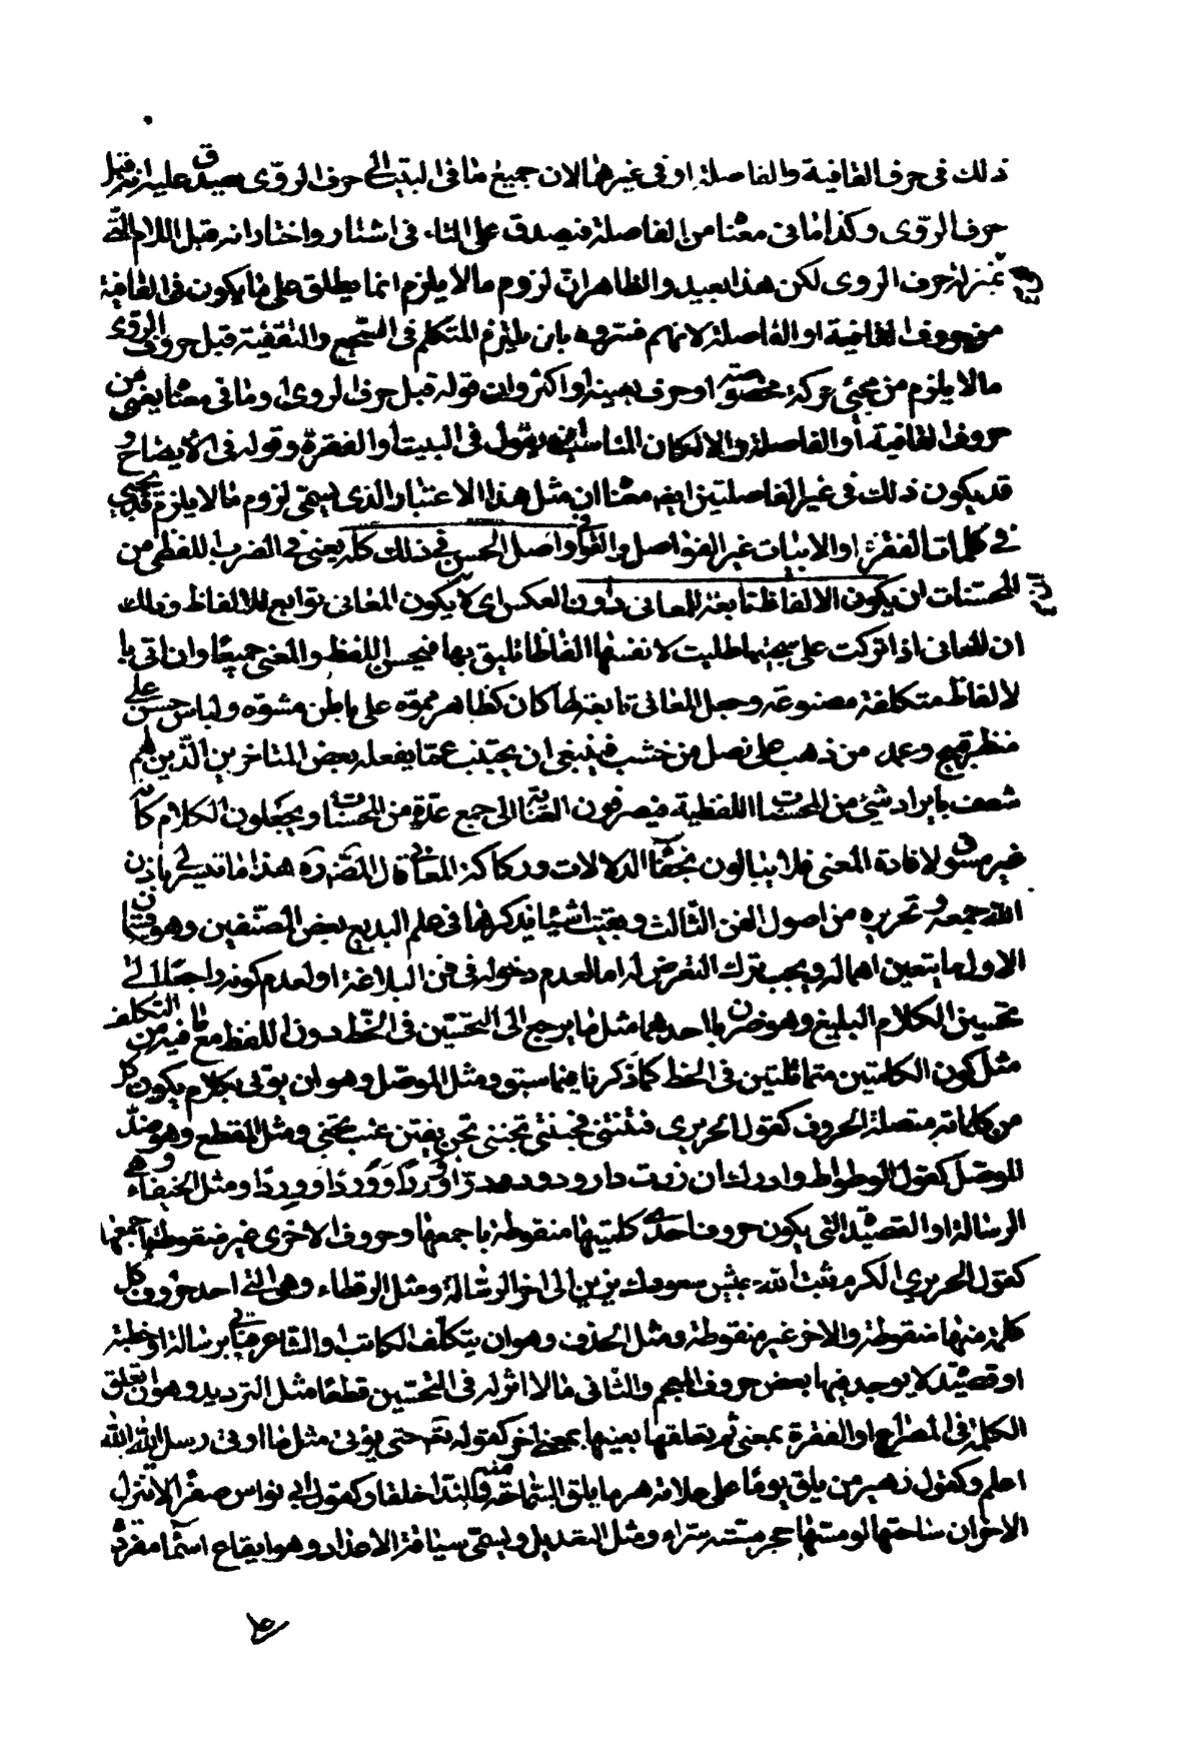 ذلك في حرف القافية والفاصلة او في غيرهما لان جميع ما في البيت الى حرف الروي يصدق عليه انه قبل
حرف الروي وكذا ما في معناه من الفاصلة فيصدق على التاء في اشتار واختار انه قبل اللام التي
بمنزلة حرف الروي لكن هذا بعيد والظاهر ان لزوم ما لا يلزم انما يطلق على ما يكون في القافية
من حروف القافية او الفاصلة لانهم فسروه بان يلتزم المتكلم في السجع والتقفية قبل حرف الروي
ما لا يلزم من مجئ حركة مخصوصة او حرف بعينه او اكثر وان قوله قبل حرف الروي او ما في معناه يعنى من
حروف القافية او الفاصلة والا لكان المناسب ان يقول في البيت او الفقرة وقوله في الايضاح و
قد يكون ذلك في غير الفاصلتين ايضا معناه ان مثل هذا الاعتبار الذي يسمى لزوم ما لا يلزم قد يجئ
في كلمات الفقرة او الابيات غير الفواصل والقوافي واصل الحسن في ذلك كله يعنى في الضرب اللفظي من
المحسنات ان يكون الالفاظ تابعة للمعاني دون العكس اي لا يكون المعاني توابع للالفاظ وذلك
ان المعاني اذا تركت على سجيتها طلبت لانفسها الفاظا تليق بها فيحسن اللفظ والمعنى جميعا وان اتى با
لالفاظ متكلفة مصنوعة وجعل المعاني تابعة لها كان كظاهر مموه على باطن مشوه ولباس حسن على
منظر قبيح وغمد من ذهب على نصل من خشب فينبغي ان يجتنب عما يفعله بعض المتاخرين الذين لهم
شعف بايراد شئ من المحسنات اللفظية فيصرفون العناية الى جمع عدة من المحسنات ويجعلون الكلام كانه
غير مسوق لافادة المعنى فلا يبالون بخفاء الدلالات وركاكة المعاني قال المصنف ره هذا ما تيسر لي باذن
الله جمعه وتحريره من اصول الفن الثالث وبقيت اشياء يذكرها في علم البديع بعض المصنفين وهو قسمان
الاول ما يتعين اهماله ويجب ترك التعرض له اما لعدم دخوله في فن البلاغة او لعدم كونه راجعا الى
تحسين الكلام البليغ وهو ضربان احدهما مثل ما يرجع الى التحسين في الخط دون اللفظ مع ما فيه من التكلف
مثل كون الكلمتين متماثلتين في الخط كما ذكرنا فيما سبق ومثل الموصل وهو ان يوتى بكلام يكون كل
من كلماته متصلة الحروف كقول الحريري فتنتني فجننتني تجني بتجن يفتن غب تجني ومثل المقطع وهو ضد
الموصل كقول الوطواط وادرك ان زرت دار ودود درا وردا ووردا ومثل الخيفاء وهي
الرسالة او القصيدة التي يكون حروف احدى كلمتيها منقوطة باجمعها وحروف الاخرى غير منقوطة باجمعها
كقول الحريري الكرم ثبت الله جيش سعودك يزين الى اخر الرسالة ومثل الرقطاء وهي التي احد حروف كل
كلمة منها منقوطة والاخر غير منقوطة ومثل الحذف وهو ان يتكلف الكاتب او الشاعر فياتي برسالة او خطبة
او قصيدة لا يوجد فيها بعض حروف المعجم والثاني ما لا اثر له في التحسين قطعا مثل الترديد وهو ان تعلق
الكلمة في المصراع او الفقرة بمعنى ثم تعلقها بعينها بمعنى اخر كقوله تعـ حتى نوتى مثل ما اوتي رسل الله الله
اعلم وكقول زهير من يلق يوما على علاته هرما يلق السماحة منه والندا خلقا وكقول ابي نواس صفراء لا تنزل
الاحزان ساحتها لو مسها حجر مسته سراء ومثل التعديد ويسمى سياقة الاعداد وهو ايقاع اسماء مفردة